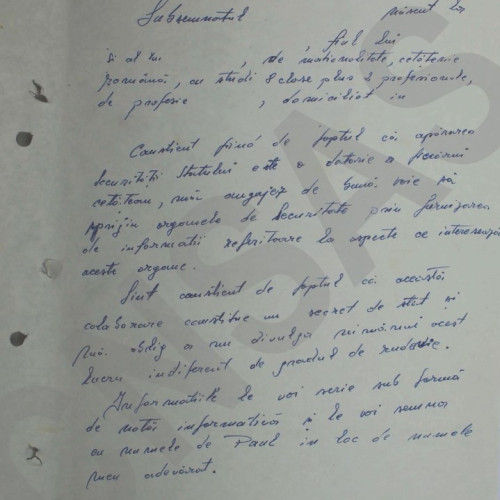 Subsemnatul născut la
fiul lui
și al lui , de naționalitate, cetățenie
română, cu studii 8 clase plus 2 profesionale,
de profesie , domiciliat in
Conștient fiind de faptul că apărarea
Securității Statului este o datorie a fiecărui
cetățean, mă angajez de bună voie să
sprijin organele de Securitate prin furnizarea
de informații referitoare la aspecte ce interesează
aceste organe.
Sint conștient de faptul că această
colaborare constitue un secret de stat și
mă oblig a nu divulga nimănui acest
lucru indiferent de gradul de rudenie.
Informațiile le voi scrie sub formă
de notă informativă și le voi semna
cu numele de Paul in loc de numele
meu adevărat.
CNSAS